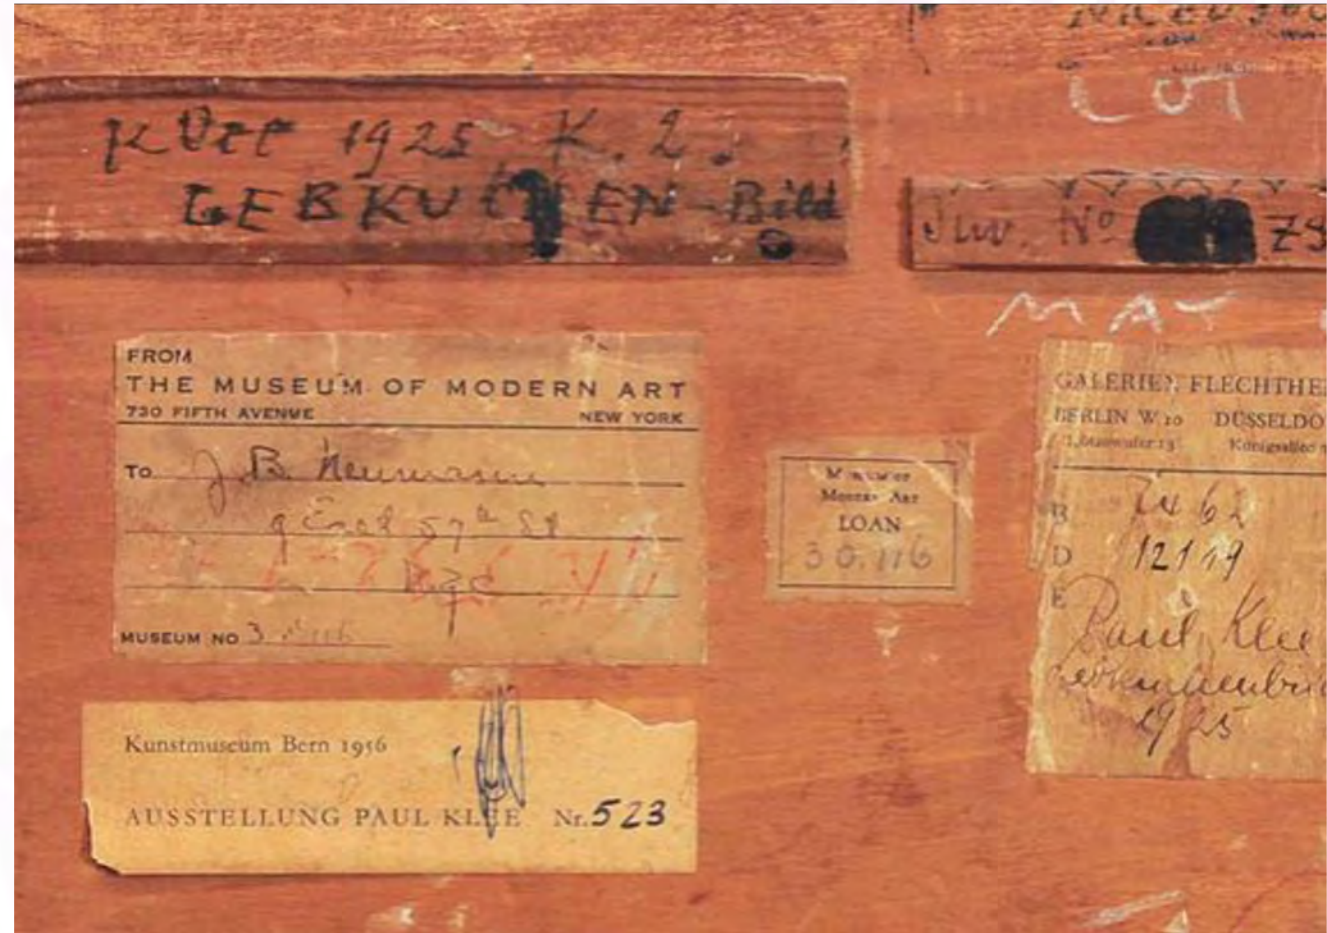 Klee 1925 K. 2.
LEBKUCHEN-Bild
LOT
Inv. No
MAY
FROM
THE MUSEUM OF MODERN ART
730 FIFTH AVENUE NEW YORK
TO J. B. Neumann
9 East 57th St
NYC
MUSEUM NO
MUSEUM OF
MODERN ART
LOAN
30.116
GALERIEN FLECHTHE
BERLIN W 10 DÜSSELDO
B
D 12119
E
Paul Klee
1925
Kunstmuseum Bern 1956
AUSSTELLUNG PAUL KLEE Nr. 523